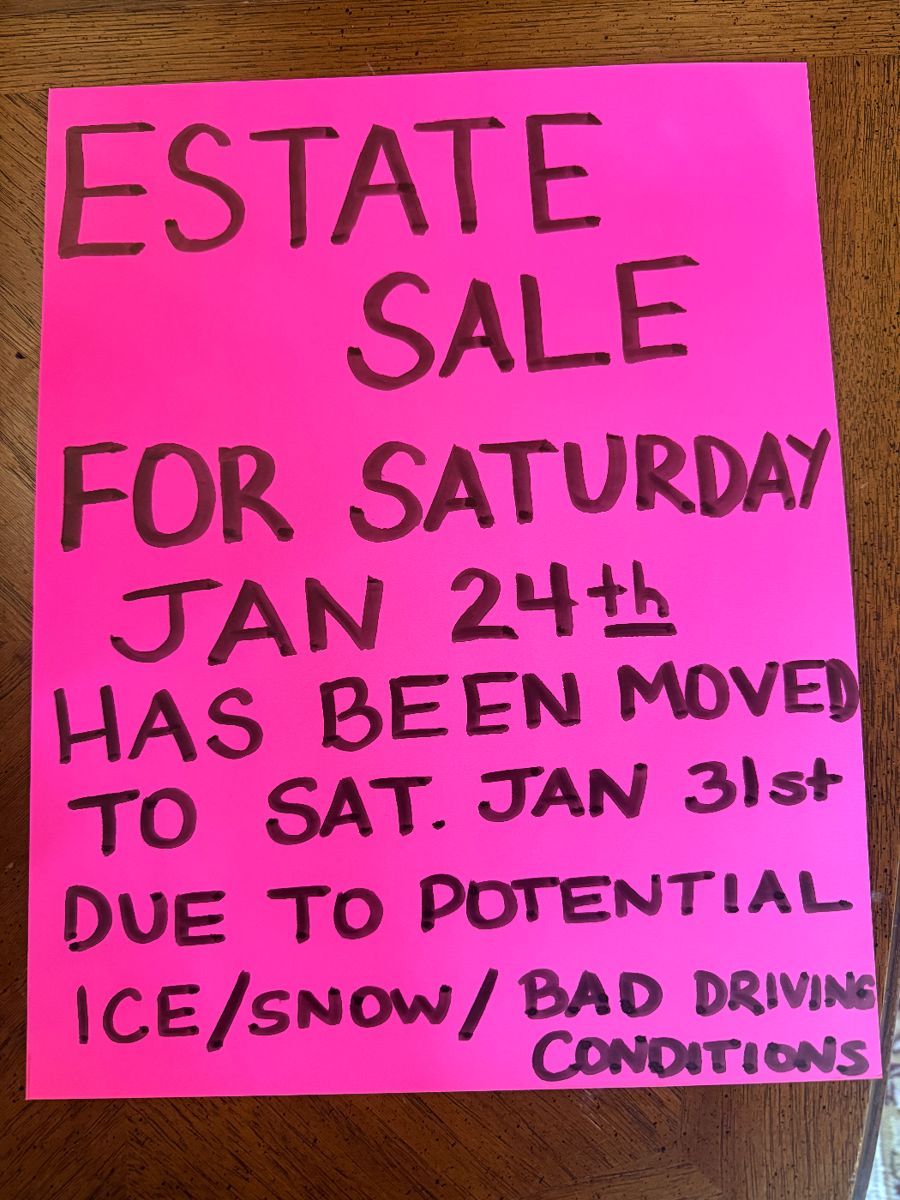 ESTATE
SALE
FOR SATURDAY
JAN 24th
HAS BEEN MOVED
TO SAT. JAN 31st
DUE TO POTENTIAL
ICE/SNOW/BAD DRIVING
CONDITIONS